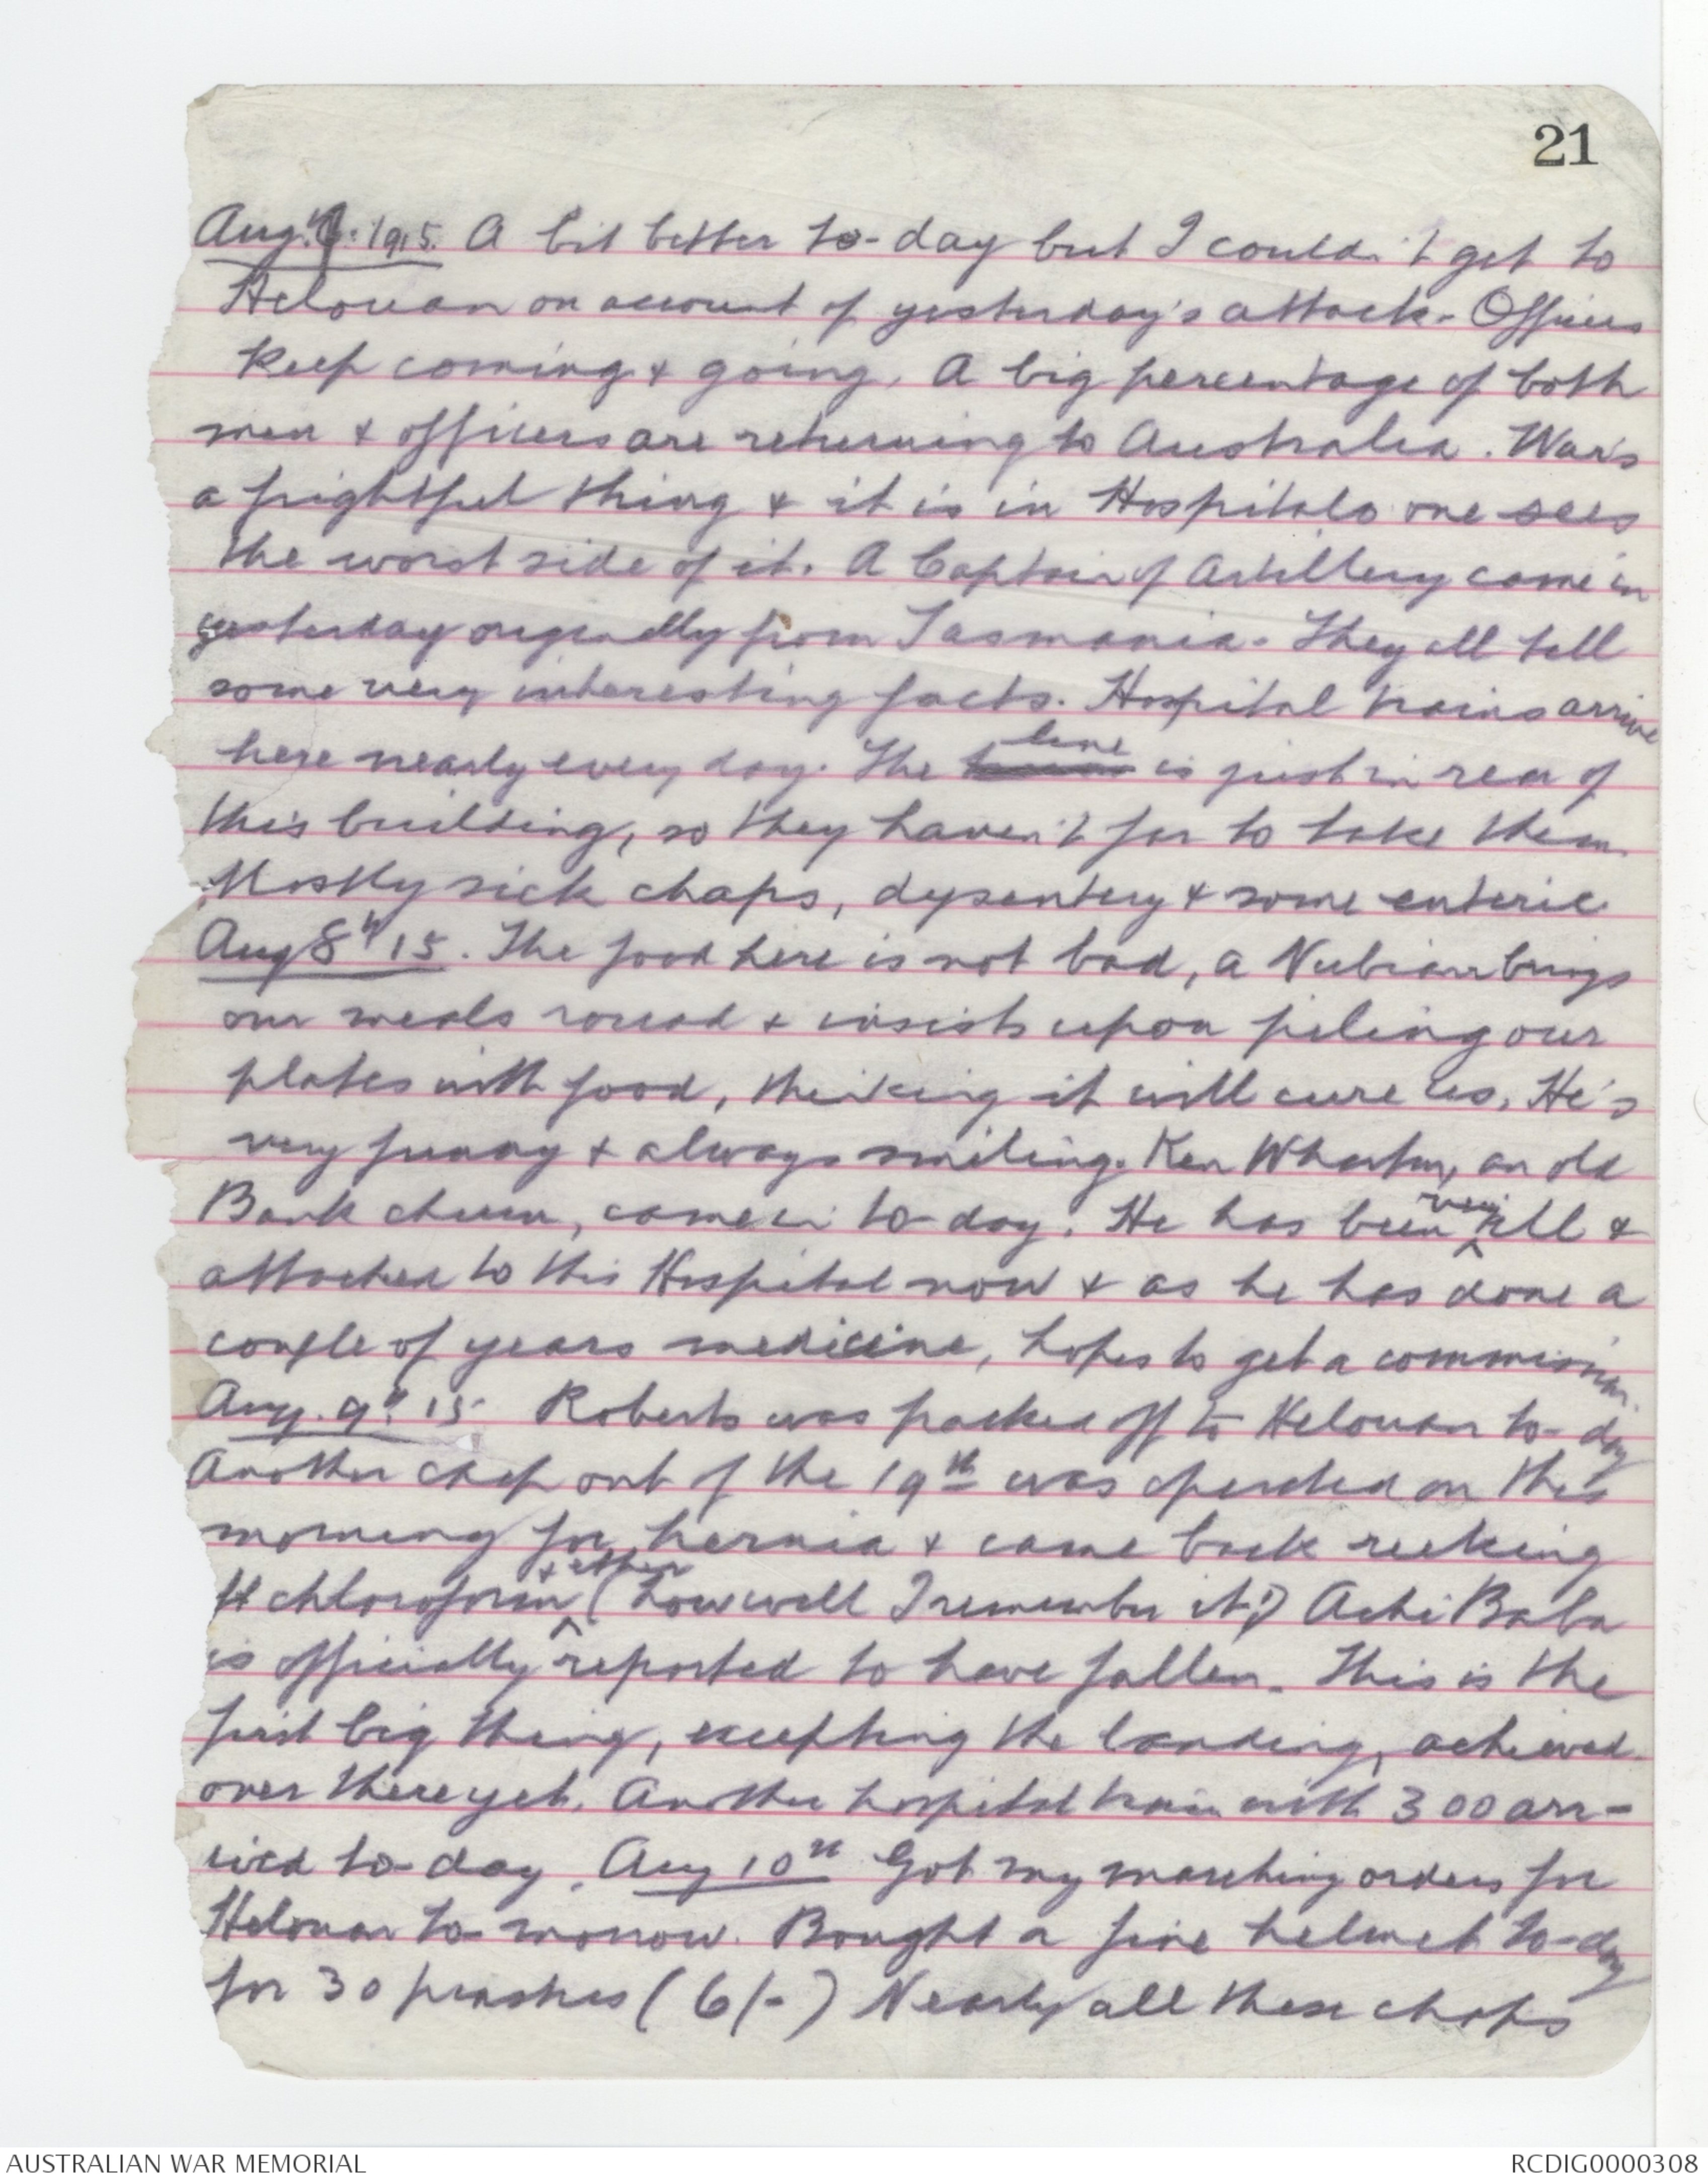 21
Aug. 7. 1915. A bit better to-day but I couldn't get to
Helouan on account of yesterday's attack - Officers
keep coming & going. A big percentage of both
men & officers are returning to Australia. War's
a frightful thing & it is in Hospitals one sees
the worst side of it. A Captain of Artillery came in
yesterday originally from Tasmania - They all tell
some very interesting facts. Hospital trains arrive
here nearly every day. The line is just in rear of
this building, so they haven't far to take them.
Mostly sick chaps, dysentery & some enteric.
Aug 8th 15. The food here is not bad, a Nubian brings
our meals round & insists upon piling our
plates with food, thinking it will cure us. He's
very funny & always smiling. Ken Wharton, an old
Bank chum, came in to-day. He has been very ill &
attached to this Hospital now & as he has done a
couple of years medicine, hopes to get a commission.
Aug. 9th 15 Roberts was packed off to Helouan to-day
Another chap out of the 19th was operated on this
morning for hernia & came back reeking
of chloroform & ether (how well I remember it!) Achi Baba
is officially reported to have fallen. This is the
first big thing, excepting the landing, achieved
over there yet. Another hospital train with 300 arr-
ived to-day. Aug 10th Got my marching orders for
Helouan to-morrow. Bought a fine helmet to-day
for 30 piastres (6/-) Nearly all these chaps
AUSTRALIAN WAR MEMORIAL
RCDIG0000308